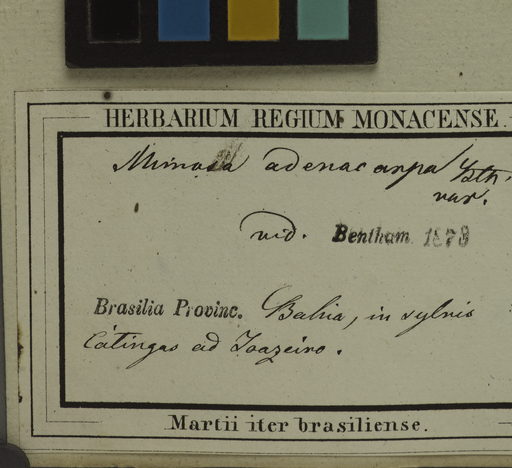 HERBARIUM REGIUM MONACENSE.
Mimosa adenocarpa Bth.
var.
vid. Bentham 1873
Brasilia Provinc. Bahia, in sylvis
Catingas ad Joazeiro.
Martii iter brasiliense.